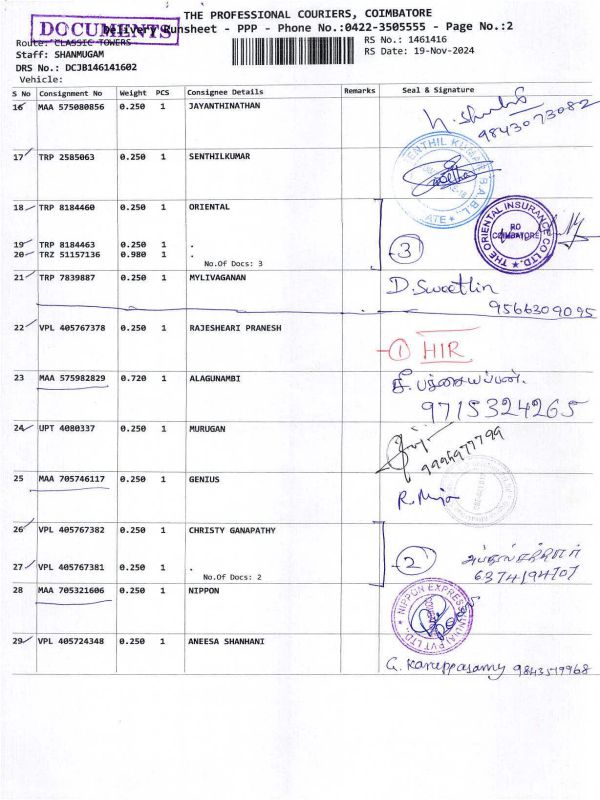 THE PROFESSIONAL COURIERS, COIMBATORE
DOCUMENTS
Delivery Runsheet - PPP - Phone No.:0422-3505555 - Page No.:2
Route: CLASSIC TOWERS
RS No.: 1461416
Staff: SHANMUGAM
RS Date: 19-Nov-2024
DRS No.: DCJB146141602
Vehicle:
S No Consignment No Weight PCS Consignee Details Remarks Seal & Signature
16 MAA 575080856 0.250 1 JAYANTHINATHAN
9843073082
17 TRP 2585063 0.250 1 SENTHILKUMAR
18 TRP 8184460 0.250 1 ORIENTAL
THE ORIENTAL INSURANCE CO LTD. RO COIMBATORE
19 TRP 8184463 0.250 1 .
3
20 TRZ 51157136 0.980 1 .
No.Of Docs: 3
21 TRP 7839887 0.250 1 MYLIVAGANAN
D. Sweetlin
9566309095
22 VPL 405767378 0.250 1 RAJESHEARI PRANESH
1 HIR
23 MAA 575982829 0.720 1 ALAGUNAMBI
9715324265
24 UPT 4080337 0.250 1 MURUGAN
25 MAA 705746117 0.250 1 GENIUS
26 VPL 405767382 0.250 1 CHRISTY GANAPATHY
27 VPL 405767381 0.250 1 .
2
No.Of Docs: 2
28 MAA 705321606 0.250 1 NIPPON
29 VPL 405724348 0.250 1 ANEESA SHANHANI
G. Karuppasamy